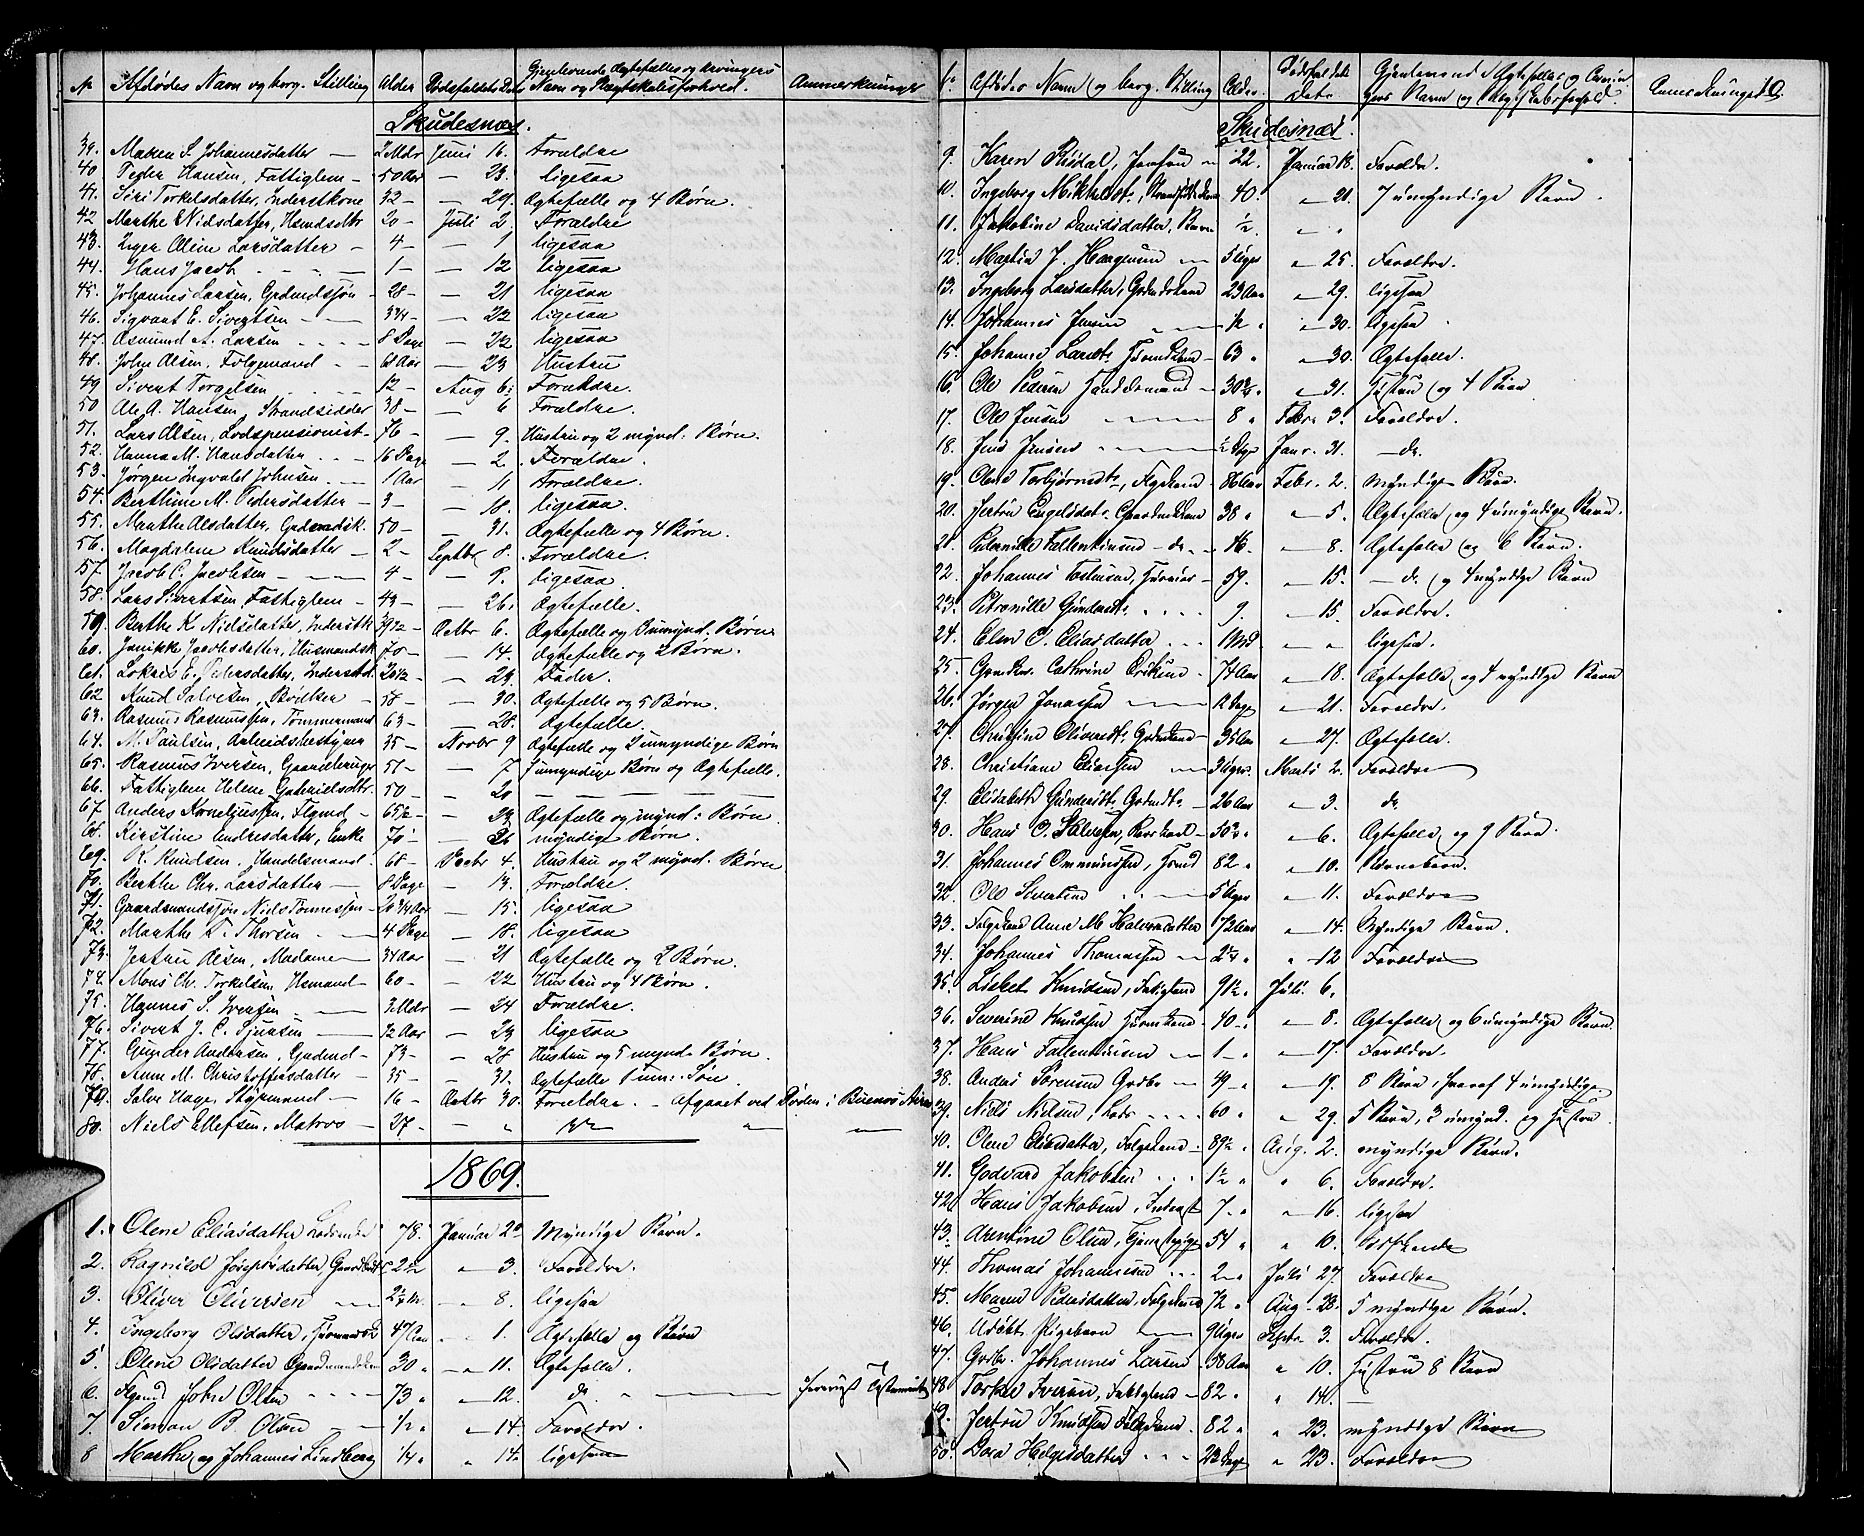 No Afdødes Navn og borg. Stilling Alder Dødsfaldets Dato Gjenlevende Ægtefælles og Arvingers Navn og Slægtskabsforhold. Anmerkninger
Skudesnæs.
39. Maren S. Johannesdatter — 2 Mdr Juni 16. Forældre
40 Peder Hansen, Fattiglem — 50 Aar — 23. ligesaa
41. Siri Torkelsdatter, Inderstkone 32 — — 29. Ægtefælle og 4 Børn.
42 Marthe E Nielsdatter, Husmdsdtr 20 — Juli 2. Forældre
43. Inger Oline Larsdatter — 4 — — 1 ligesaa
44. Hans Jacob 1 — — 12 ligesaa
45. Johannes Larsen, Grdmdssøn — 28 — — 21 ligesaa
46. Sigvart E. Sivertsen — 3/4 — — 22 ligesaa
47. Asmund A. Larsen 8 Dage — 22 ligesaa
48. John Olsen, Folgemand — 61 Aar — 23 Hustru
49 Sivert Torgelsen 12 — Aug 6. Forældre.
50 Ole A. Hansen Strandsidder 38 — — 6 Forældre.
51. Lars Olsen, Lodspensionist — 76 — — 9. Hustru og 2 mynd. Børn.
52. Hanna M. Hansdatter 16 Dage — 2. Forældre.
53. Jørgen Ingvald Johnsen. 1 Aar — 11 Forældre.
54. Berthine M. Pedersdatter — 3 — — 18. ligesaa.
55. Marthe Olsdatter, Grdmdsk. 50 — — 31. Ægtefælle og 4 Børn.
56. Magdalene Knudsdatter — 2 — Septbr 8. Forældre.
57. Jacob C. Jacobsen — 4 — — 9. ligesaa
58. Lars Sivertsen Fattiglem — 43 — — 26. Ægtefælle.
59. Berthe K. Nielsdatter, Inderstk 39 1/2 — Octbr 6. Ægtefælle og 3 umynd. Børn
60. Jannikke Jacobsdatter, Husmandsk 70 — — 14. Ægtefælle og 2 Børn.
61. E. Pedersdatter, Inderstd. 20 1/2 — — 23. Fader.
62 Knud Salvesen, Bødker — 58 — — 30. Ægtefælle og 5 Børn.
63. Rasmus Rasmussen, Tømmermand 63 — — 28. Ægtefælle.
64. M. Paulsen, Arbeidsbestyrer 35 — Novbr 9 Ægtefælle og 2 umyndige Børn
65. Rasmus Iversen, Gaardbruger 51 — — 7 3 umyndige Børn og Ægtefælle.
66. Fattiglem Helene Gabrielsdtr. 50 — — 20 —
67. Anders Korneliussen, Flgmd — 65 1/2 — — 23. Ægtefælle og mynd: Børn.
68. Kirstine Endresdatter, Enke 70 — — 26 myndige Børn.
69. K. Knudsen. Handelsmand. 68 — Decbr 4. Hustru og 2 mynd. Børn
70. Berthe Chr. Larsdatter — 8 Dage — 13. Forældre.
71. Gaardmandssøn Niels Tønnessen — 20 3/4 Aar — 15. ligesaa
72. Marthe T. Thorsen — 4 Dage — 18. ligesaa
73. Jertrue Olsen, Madame — 34 Aar — 21 Ægtefælle og 2 Børn.
74. Mons Chr. Torkelsen Hsmand — 60 — — 22 Hustru og 4 Børn.
75. Hannes S. Iversen — 3 Mdr — 24 Forældre.
76. Sivert J. C. — 1/2 Aar — 23 ligesaa
77. Gunder Andersen, Grdmd — 73 — — 28 Hustru og 5 mynd. Børn.
78. Anne M. Christoffersdatter — 35 — — 31. Ægtefælle 1 um: Søn.
79. Salve Styrmand — 16 — Octbr 30. Forældre. — Afgaaet ved Døden i Buenos Aires
80. Niels Ellefsen. Matros — 27 — — " —
1869.
1. Olene Eliasdatter 78. Januar 20 Myndige Børn.
2. Ragnild Josephsdatter, 2 1/2 " 3. Forældre.
3. Oliver Oliversen — " 8. ligesaa
4. Ingeborg Olsdatter, 47 Aar " 1. Ægtefælle og Børn
5. Olene Olsdatter 30 " 11. Ægtefælle.
6. Flgmd John Olsen 73 " — 12. do. — Testamente
7. Simon B. Olsen — 1/2 " — 14. Forældre.
8 Marthe og Johannes Lindberg 1/4 " " 14. ligesaa
Afdødes Navn og borg. Stilling Alder. Dødsfaldets Dato Gjenlevende Ægtefælles og Arvingers Navn og Slægtskabsforhold. Anmerkninger.
Skudesnæs.
9. Karen Risdal, — 22. Januar 18. Forældre.
10. Ingeborg 40. " 21. 7 umyndige Børn.
11. Jakobine Davidsdatter, Barn 1/2. " "
12. Martin J. — 5 Uger " 25. Forældre.
13. Ingeborg Larsdatter, 23 Aar " 29. ligesaa
14. Johannes Jensen — 1/2 " — 30. ligesaa
15. Johanne Larsdtr — 63 " — 30. Ægtefælle.
16. Ole Pedersen — 30 3/4 " — 31. Hustru og 4 Børn
17. Ole Jensen — 8 " Febr. 3. Forældre.
18. Jens Jensen — Janr. 31. — do.
19. Olene Torbjørnsdtr, 86 Aar Febr. 2. Myndige Børn.
20. Jertru Engelsdtr. 38 " " 5. Ægtefælle og 4 umyndige Børn.
21. — do — " 8. Ægtefælle og 6 Børn.
22. Johannes 59. " — 15. — do. og 4 myndige Børn
23. Petronille Gundersdtr. 9. — 15. Forældre.
24. Elen C. Eliasdatter 1 Md " " ligesaa.
25 Cathrine Eriksen — 74 Aar " 18. Ægtefælle og 4 myndige Børn
26. Jørgen Jonassen — 12 Dage " 21. Forældre.
27. Christine Olivsdtr. — 35 Aar " 27. Ægtefælle.
28. Christiane Eliassen — 3 Uger. Marts 2. Forældre
29. Elisabeth Gundersdtr — 26 Aar " 3. do.
30. Hans O. — 50 3/4 " " 6. Ægtefælle og 9 Børn.
31. Johannes Ommundsen, 82 " " 10. Børnebørn.
32. Ole Sivertsen 5 Uger " 11. Forældre
33. Anne M. Halvorsdatter 72 Aar " — 14. Myndige Børn.
34. Johannes Thomassen — " — 12 Forældre
35. Lisbet Knudsen, 91 1/2 " Juli 6.
36. Severine Knudsen 40. " — 8. Ægtefælle og 6 umyndige Børn.
37. Hans — 1 — " — 17. Forældre.
38. Anders Sørensen — 49 — " — 19. 8 Børn, hvoraf 4 umyndige
39. Niels Nielsen, 60 " — 29. 5 Børn, 3 umynd. og Hustru.
40. Olene Eliasdatter, — 89 1/2 " Aug. 2. myndige Børn.
41. Godvard Jakobsen 1 1/2 " " 6. Forældre.
42. Hans Jakobsen, 7 — " " 16. ligesaa
43. Olsen, 54 " " 10. Søskende
44. Thomas Johannesen 2 — " Juli 27. Forældre
45. Maren Pedersdatter, 72 " Aug. 28. 5 myndige Børn.
46. Udøbt Pigebarn — 9 Uger Septr. 3. Forældre.
47. Grdbr. Johannes Larsen — 38 Aar " 10. Hustru 8 Børn
48 Iversen, — 82 " " 14. —
49. Jertru Knudsen 82 " " 23. myndige Børn
50. Helgesdatter " 23. Forældre